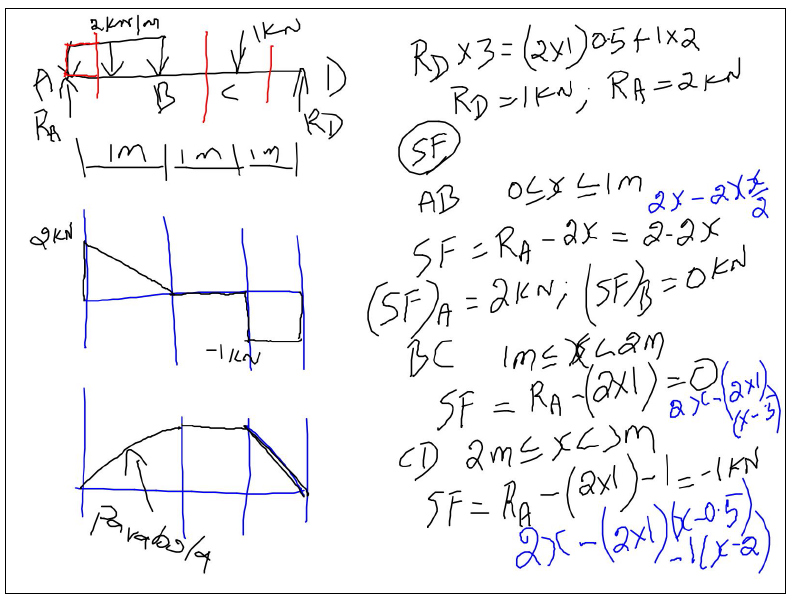 2kN/m
1KN
A
B
C
D
RA
RD
1M
1M
1M
2KN
-1KN
Parabola
RD×3=(2×1)0.5+1×2
RD=1KN; RA=2KN
SF
AB 0≤x≤1m 2x-2×x×x/2
SF=RA-2x=2-2x
(SF)A=2KN; (SF)B=0KN
BC 1m≤x<2m
SF=RA-(2×1)=0
2x-(2×1)
CD 2m≤x<3m
SF=RA-(2×1)-1=-1KN
2x-(2×1)(x-0.5)
-1(x-2)